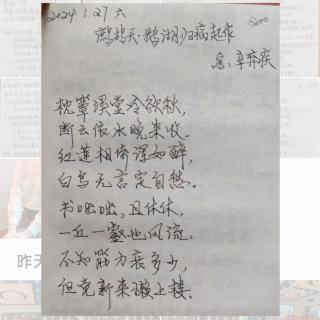 2024 1.27 六
200
鹧鸪天·鹅湖归病起作
宋:辛弃疾
枕簟溪堂冷欲秋,
断云依水晚来收。
红莲相倚浑如醉,
白鸟无言定自愁。
书咄咄,且休休,
一丘一壑也风流。
不知筋力衰多少,
但觉新来懒上楼。
昨天